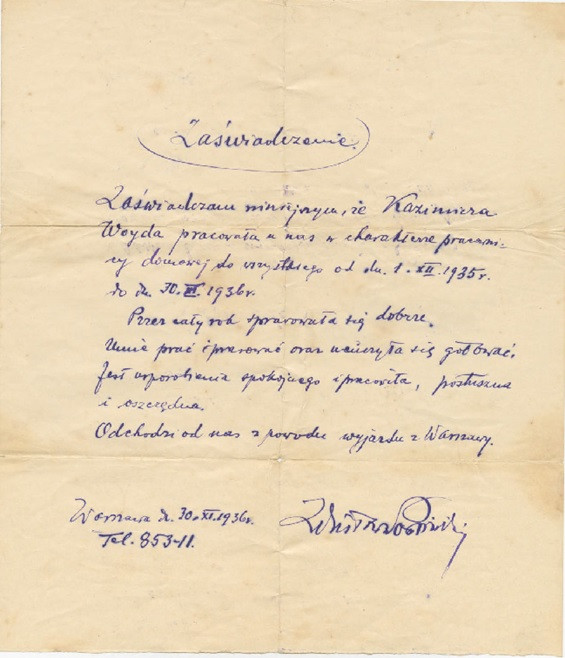 Zaświadczenie.
Zaświadczam niniejszym, że Kazimiera
Woyda pracowała u nas w charakterze pracowni-
cy domowej do wszystkiego od dn. 1.XII.1935r.
do dn. 30.XI.1936r.
Przez cały rok sprawowała się dobrze.
Umie prać i prasować oraz nauczyła się gotować.
Jest usposobienia spokojnego i pracowita, posłuszna
i oszczędna.
Odchodzi od nas z powodu wyjazdu z Warszawy.
Warszawa dn. 30.XI.1936r.
Tel. 853-11.